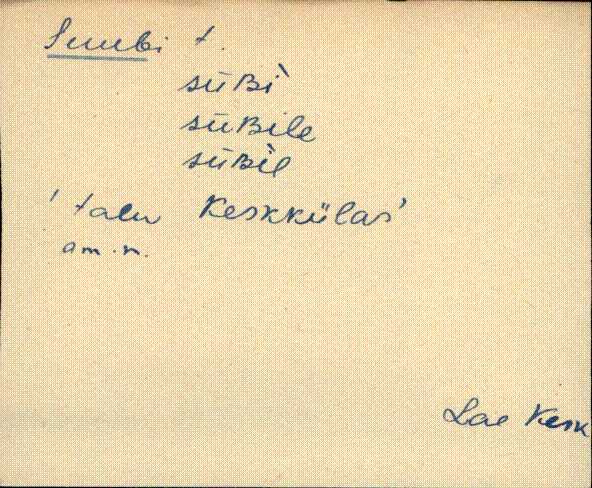 Suubi t.
sūʙì
sūʙile
sūʙìl
'talu Keskkülas'
am. n.
Lae Kesk